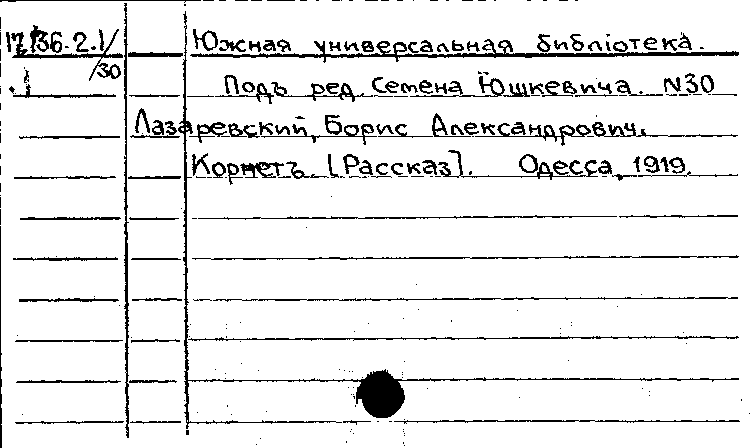 17.136.2.1/30
Южная универсальная библіотека.
Подъ ред. Семена Юшкевича. N30
Лазаревский, Борис Александрович.
Корнетъ. [Рассказ]. Одесса, 1919.